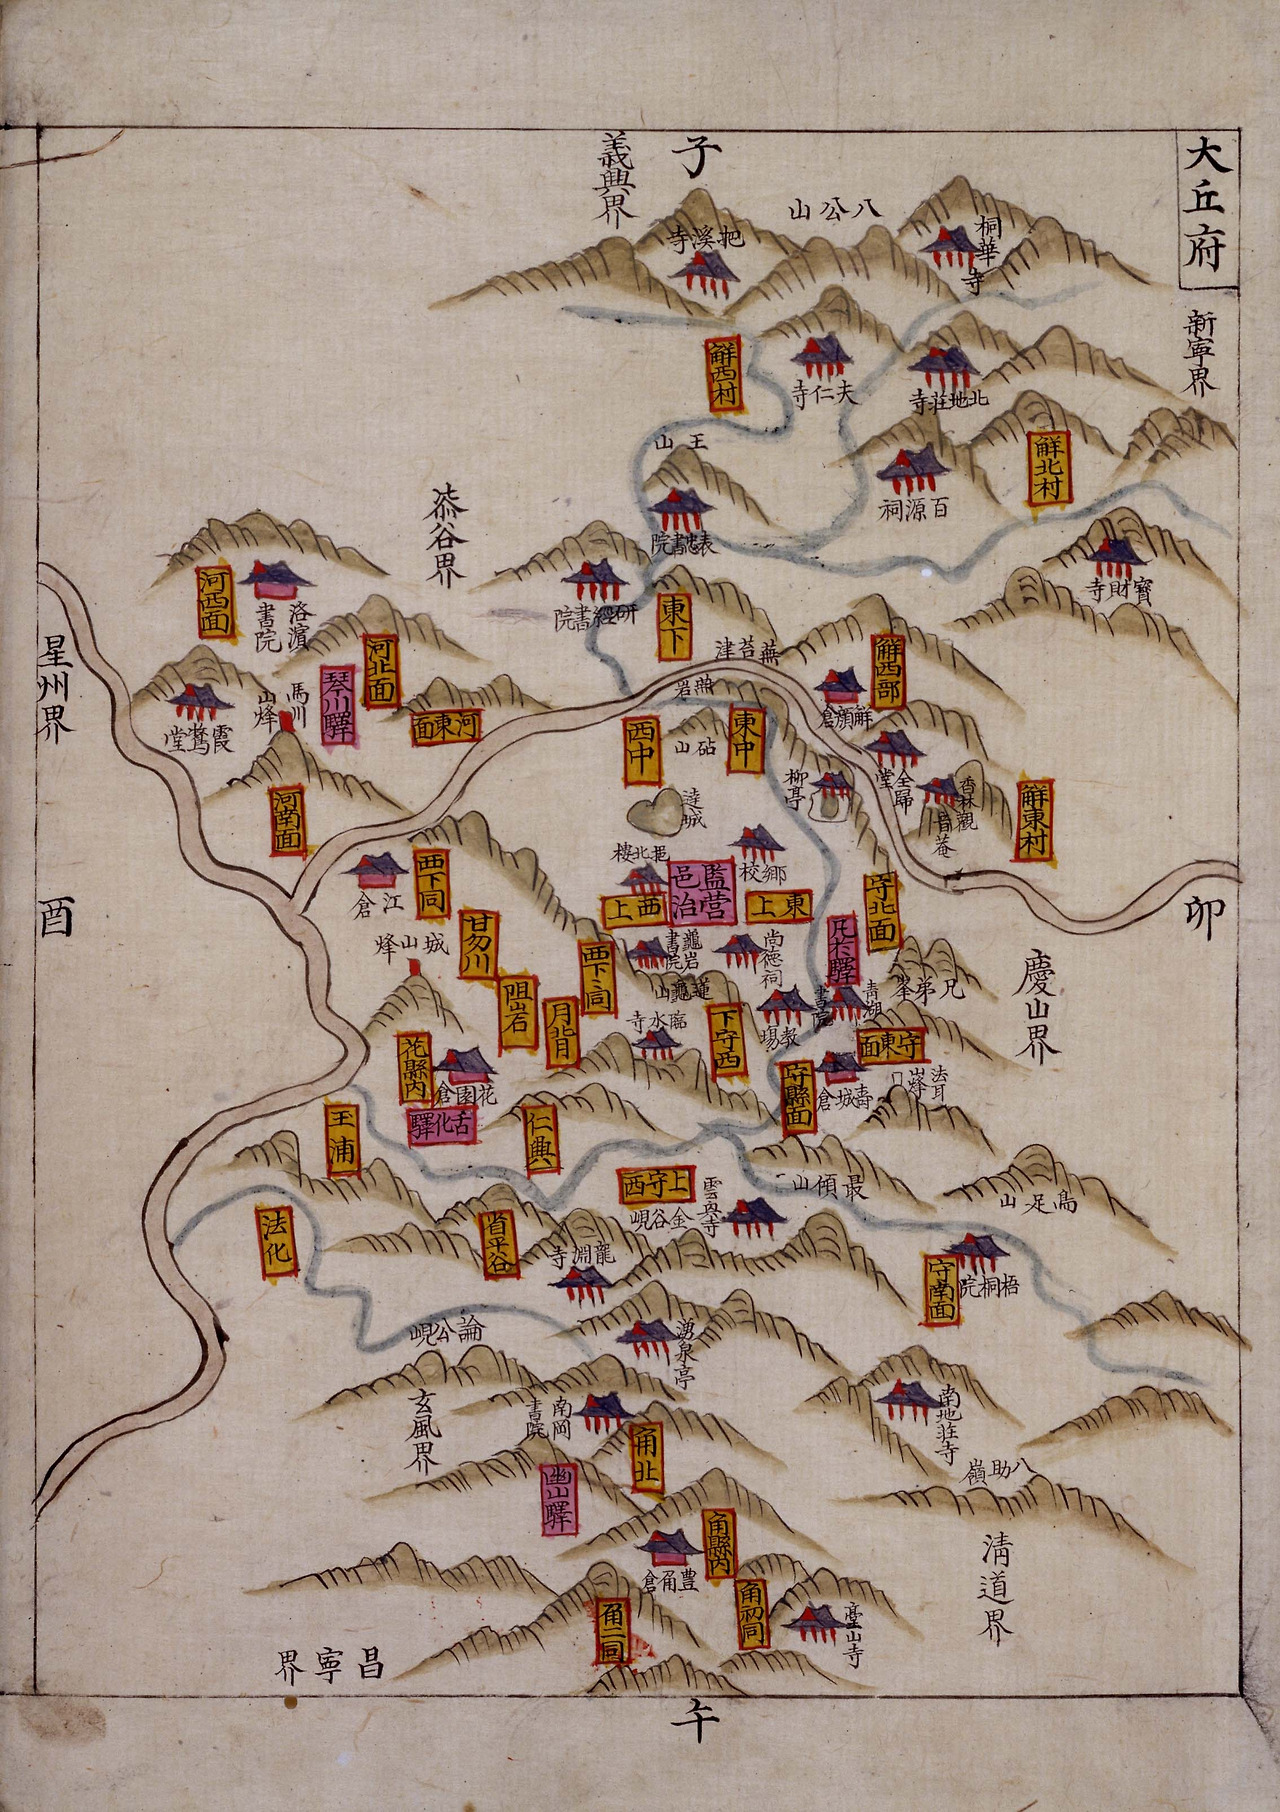 大丘府
子
義興界
八公山
桐華寺
把溪寺
新寧界
解西村
夫仁寺
北地莊寺
王山
解北村
百源祠
表忠書院
寶財寺
漆谷界
河西面
洛濱書院
研經書院
東下
星州界
河北面
琴川驛
馬川山烽
霞鶩堂
河東面
無苔津
解西部
解顏倉
西中
砧山
東中
柳亭
全歸堂
香林觀音菴
解東村
河南面
達城
邑北樓
鄉校
監營邑治
西上
東上
守北面
卯
酉
江倉
西下同
城山烽
甘勿川
龜岩書院
尚德祠
凡於驛
兄弟峯
慶山界
連龜山
臨水寺
月背
下守西
教場
青湖書院
守東面
花縣內
花園倉
舌化驛
守縣面
壽城倉
玉浦
仁興
上守西
金谷峴
最傾山
法化
省平谷
龍淵寺
守南面
梧桐院
論公峴
湧泉亭
玄風界
南岡書院
角北
南地莊寺
八助嶺
幽山驛
角縣內
豊角倉
角初同
角二同
臺山寺
清道界
昌寧界
午